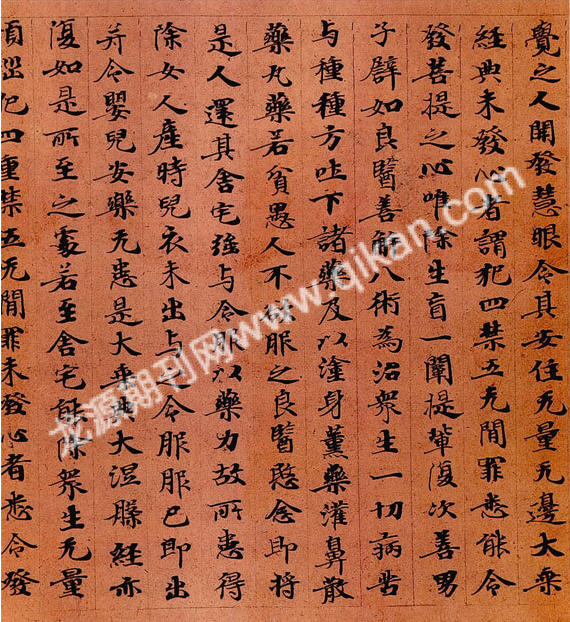 覺之人開發慧眼令其安住无量无邊大乘
經典未發心者謂犯四禁五无間罪悉能令
發菩提之心唯除生盲一闡提輩復次善男
子譬如良醫善解八術為治衆生一切病苦
与種種方吐下諸藥及以塗身薰藥灌鼻散
藥丸藥若貧愚人不欲服之良醫愍念即將
是人還其舍宅強与令服以藥力故所患得
除女人產時兒衣未出与之令服服已即出
并令嬰兒安樂无患是大乘典大涅槃經亦
復如是所至之處若至舍宅能除衆生无量
犯四重禁五无間罪未發心者悉令發
龙源期刊网www.qikan.com